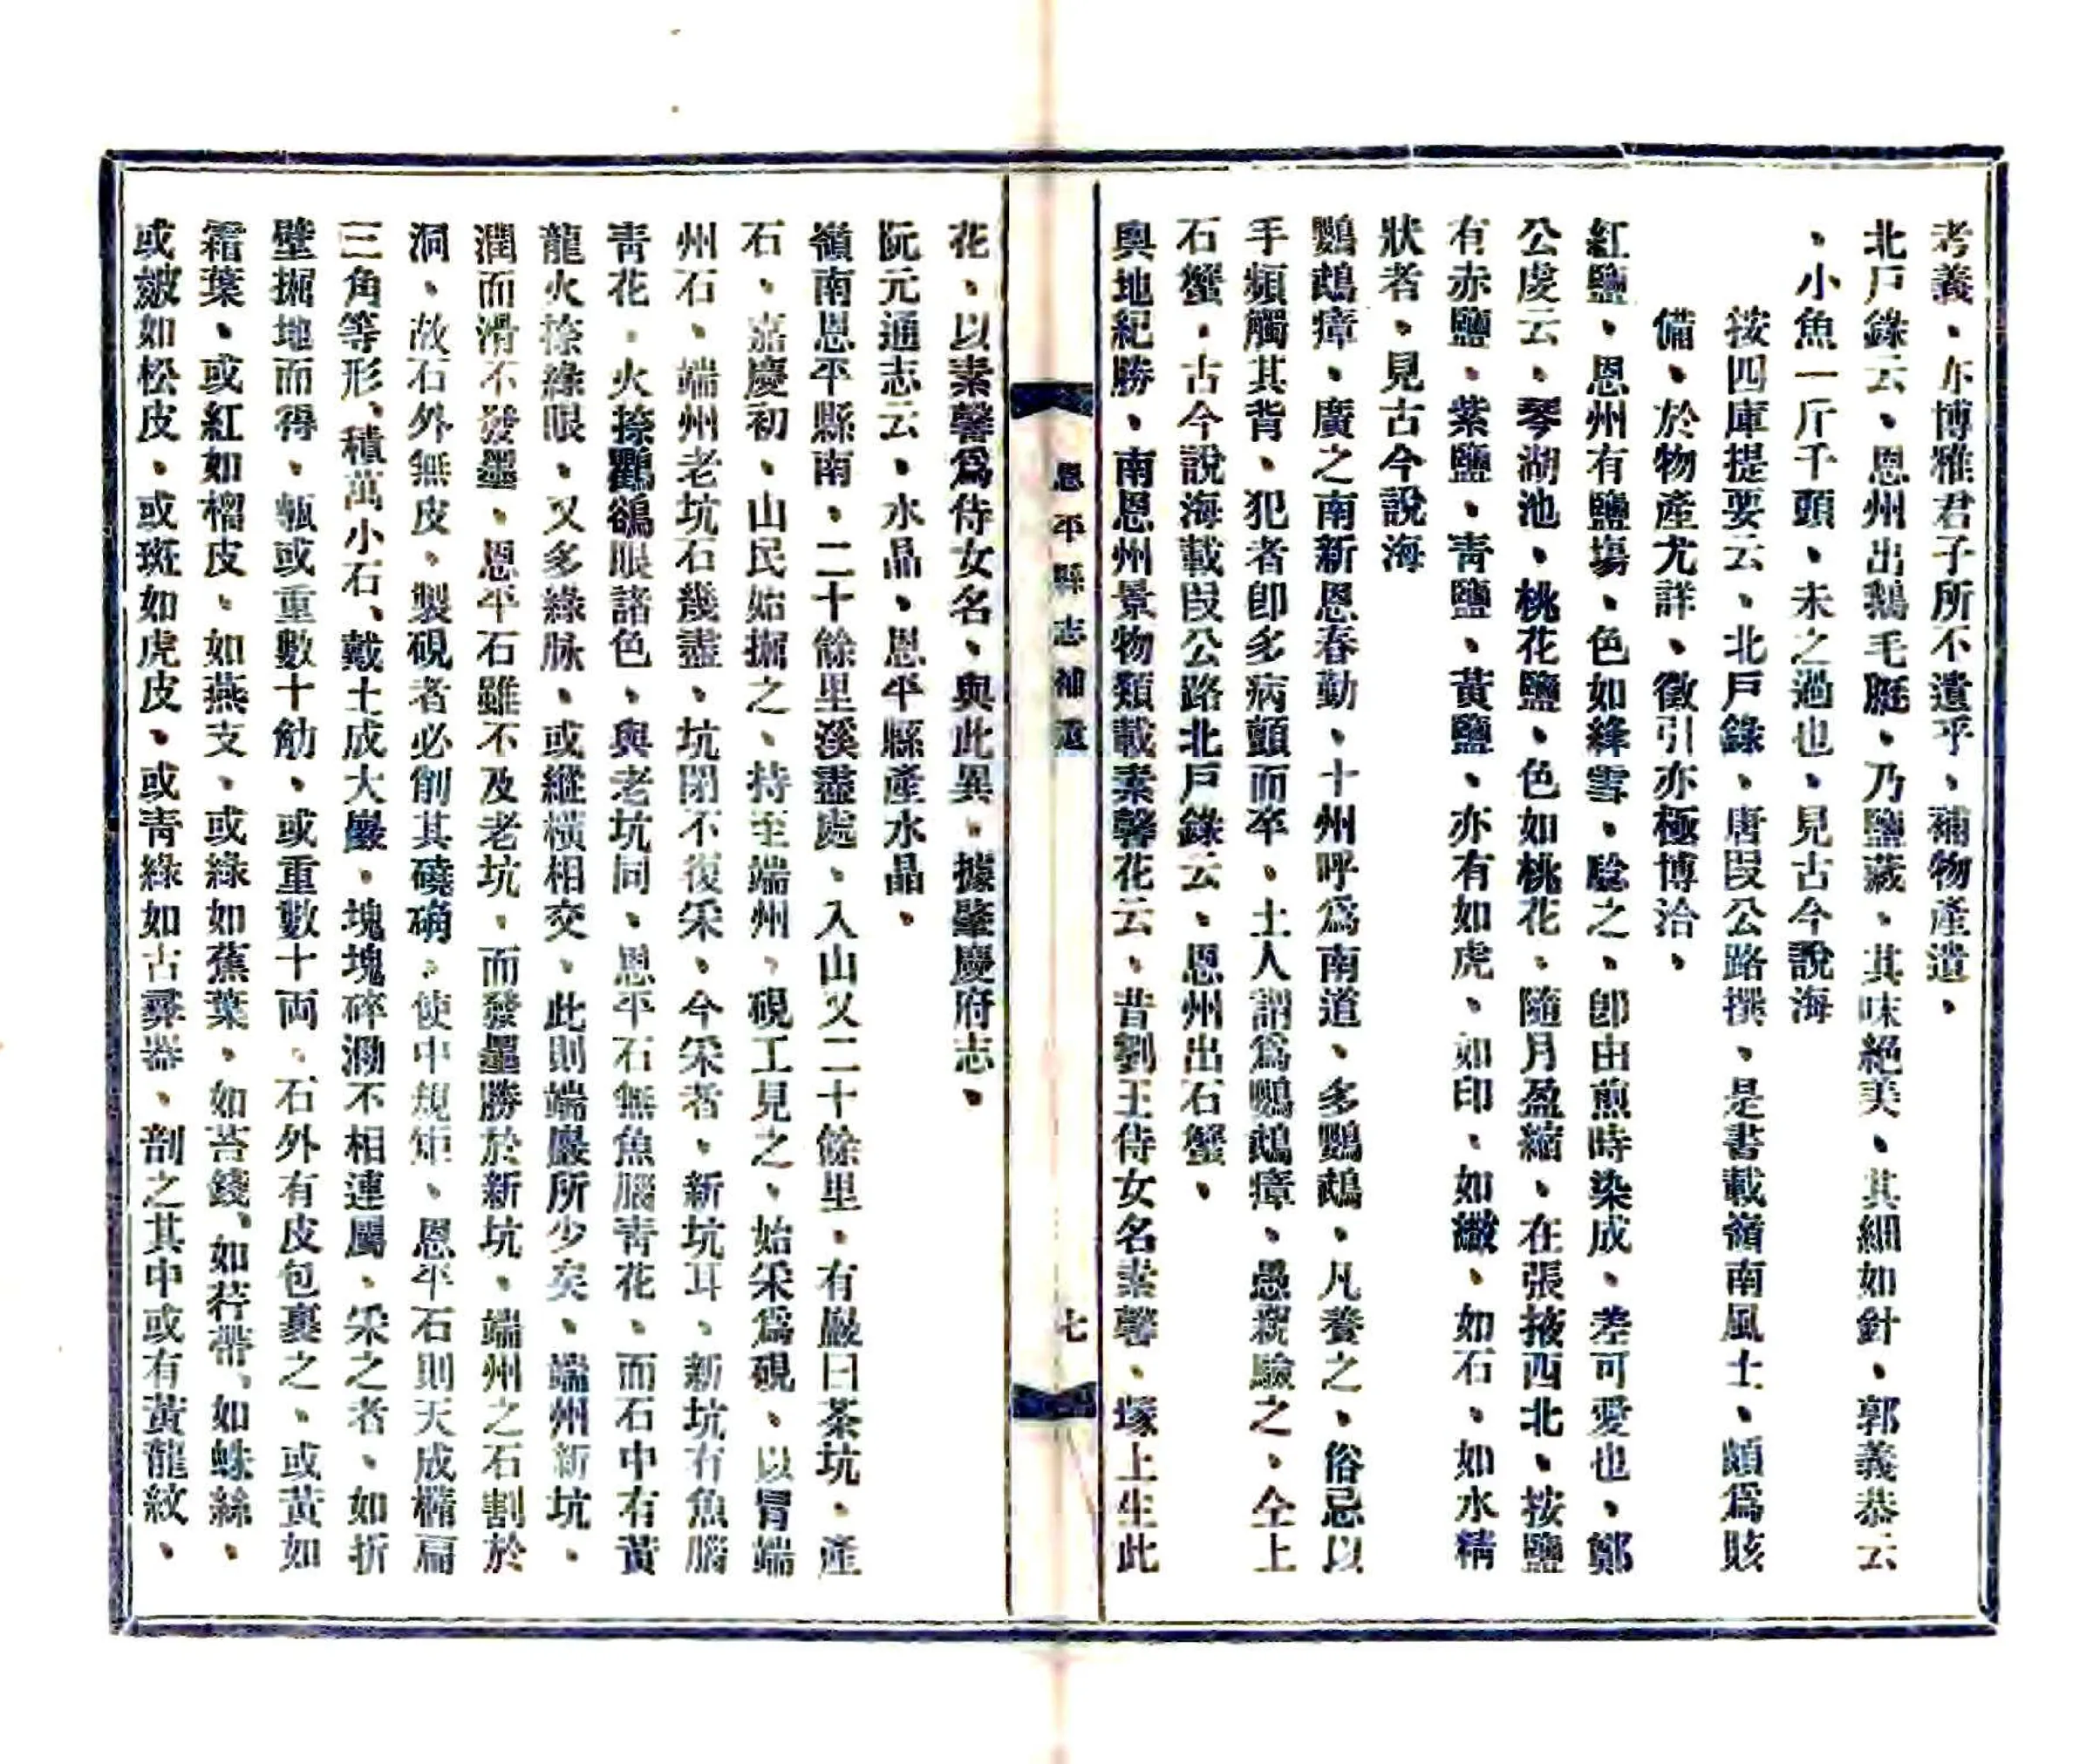 考義、亦博雅君子所不遺乎、補物產遺、
北戸錄云、恩州出鵝毛脡、乃鹽藏、其味絕美、其細如針、郭義恭云
、小魚一斤千頭、未之過也、見古今說海
按四庫提要云、北戸錄、唐段公路撰、是書載嶺南風土、頗爲賅
備、於物產尤詳、徵引亦極博洽、
紅鹽、恩州有鹽塲、色如絳雪、驗之、卽由煎時染成、差可愛也、鄭
公虔云、琴湖池、桃花鹽、色如桃花、隨月盈縮、在張掖西北、按鹽
有赤鹽、紫鹽、靑鹽、黃鹽、亦有如虎、如印、如繖、如石、如水精
狀者、見古今說海
鸚鵡瘴、廣之南新恩春勤、十州呼爲南道、多鸚鵡、凡養之、俗忌以
手頻觸其背、犯者卽多病顫而卒、土人謂爲鸚鵡瘴、愚親驗之、仝上
石蟹、古今說海載段公路北戸錄云、恩州出石蟹、
輿地紀勝、南恩州景物類載素馨花云、昔劉王侍女名素馨、塚上生此
恩平縣志補遺
七
花、以素馨爲侍女名、與此異、據肇慶府志、
阮元通志云、水晶、恩平縣產水晶、
嶺南恩平縣南、二十餘里溪盡處、入山又二十餘里、有巖曰茶坑、產
石、嘉慶初、山民始掘之、持至端州、硯工見之、始采爲硯、以冒端
州石、端州老坑石幾盡、坑閉不復采、今采者、新坑耳、新坑有魚腦
靑花、火捺鸜鵒眼諸色、與老坑同、恩平石無魚腦靑花、而石中有黃
龍火捺綠眼、又多綠脉、或縱橫相交、此則端巖所少矣、端州新坑、
潤而滑不發墨、恩平石雖不及老坑、而發墨勝於新坑、端州之石割於
洞、故石外無皮、製硯者必削其磽确、使中規矩、恩平石則天成橢扁
三角等形、積萬小石、戴土成大巖、塊塊碎泐不相連屬、采之者、如折
壁掘地而得、瓴或重數十觔、或重數十兩、石外有皮包裹之、或黃如
霜葉、或紅如榴皮、如燕支、或綠如蕉葉、如苔錢、如荇帶、如蛛絲、
或皴如松皮、或斑如虎皮、或靑綠如古彞器、剖之其中或有黃龍紋、